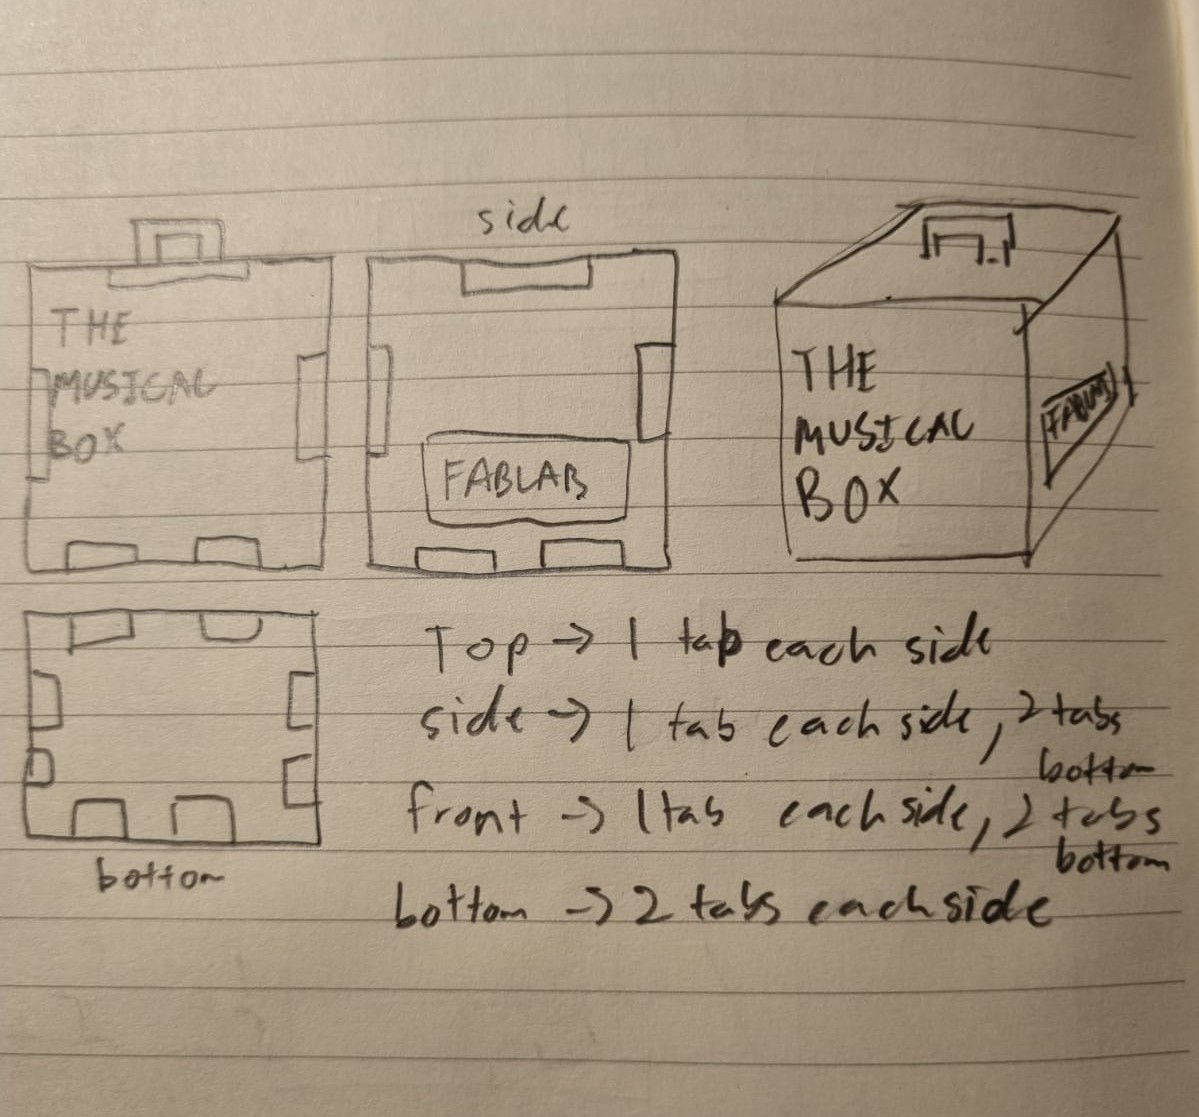 side
THE
MUSICAL
BOX
FABLAB
THE
MUSICAL
BOX
FABLAB
Top → 1 tab each side
side → 1 tab each side, 2 tabs
bottom
front → 1 tab each side, 2 tabs
bottom
bottom → 2 tabs each side
bottom